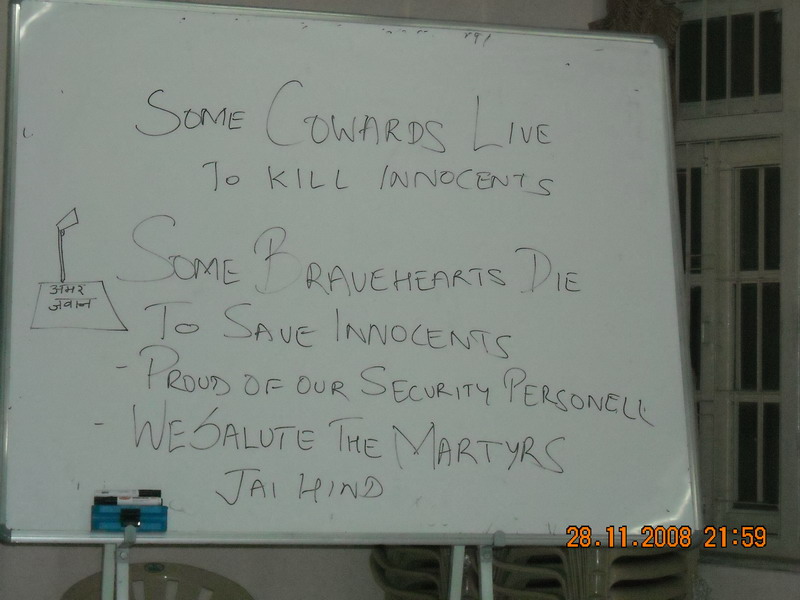 SOME COWARDS LIVE
TO KILL INNOCENTS
SOME BRAVEHEARTS DIE
अमर
जवान
TO SAVE INNOCENTS
- PROUD OF OUR SECURITY PERSONELL
- WE SALUTE THE MARTYRS
JAI HIND
28.11.2008 21:59